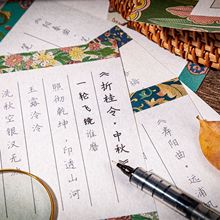 《寿阳曲·远浦
《折桂令·中秋》
一轮飞镜谁磨
照彻乾坤，印透山河
玉露泠泠
洗秋空银汉无